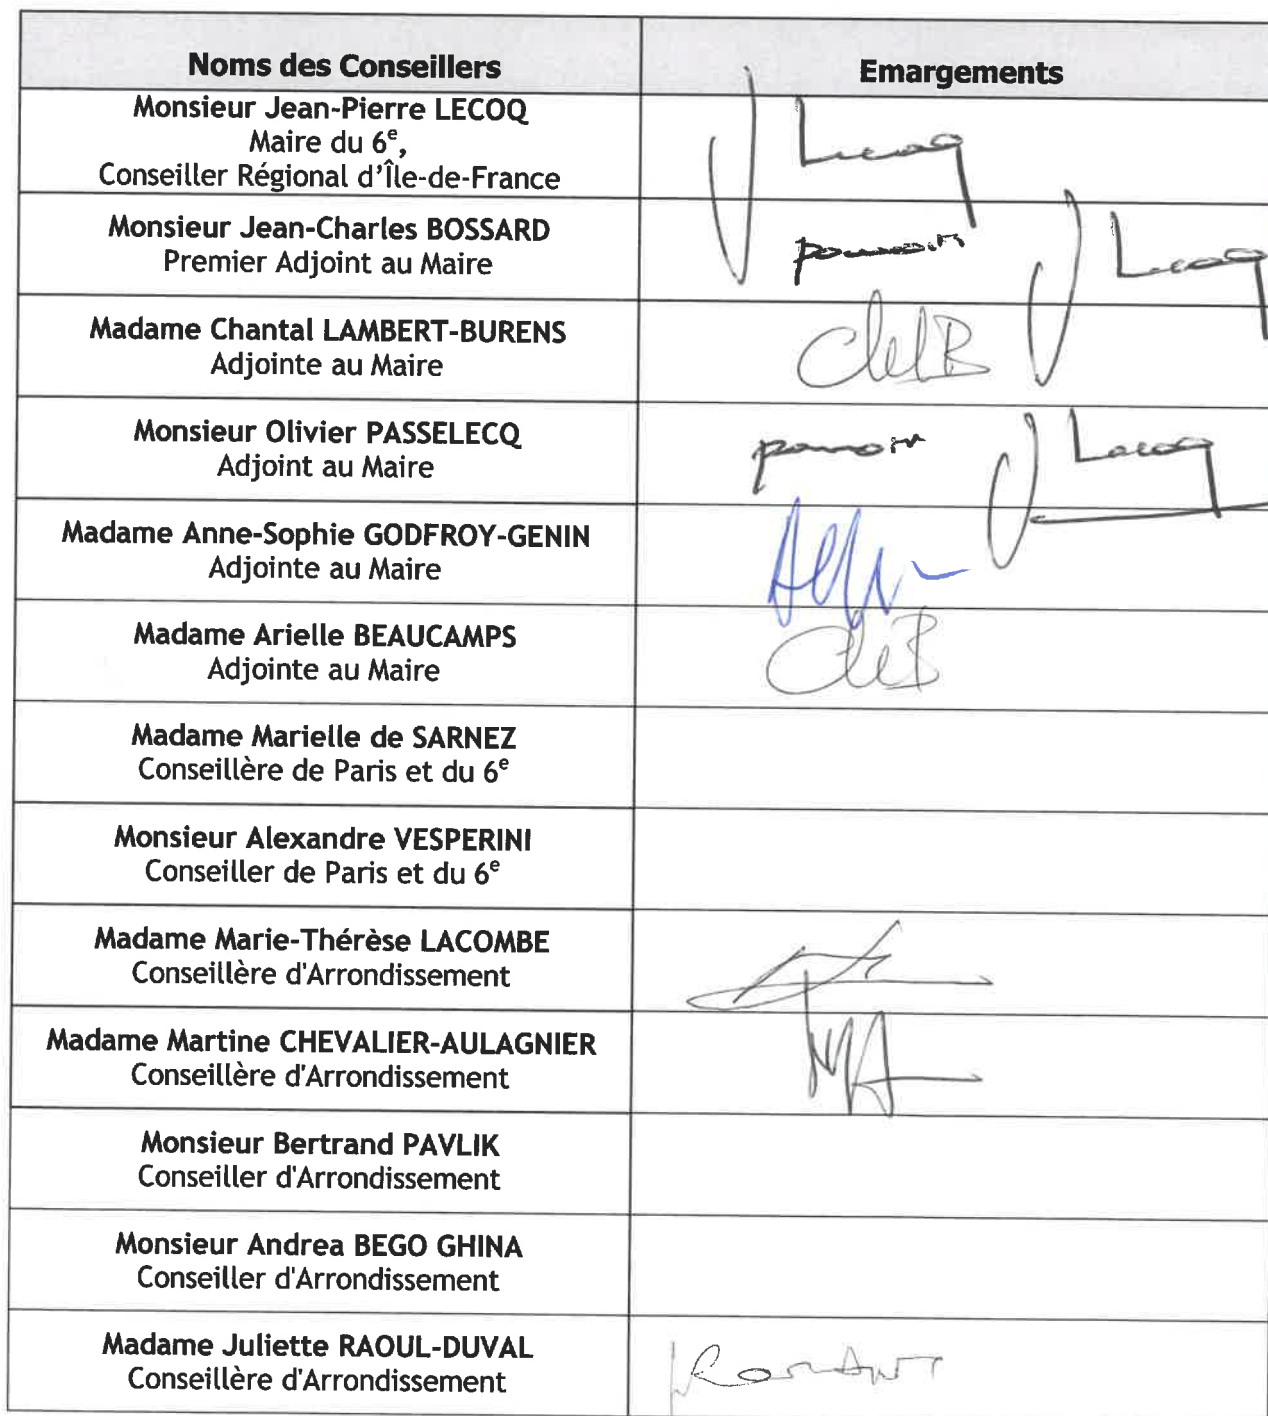 Noms des Conseillers
Emargements
Monsieur Jean-Pierre LECOQ
Maire du 6e,
Conseiller Régional d'Île-de-France
J Lecoq
Monsieur Jean-Charles BOSSARD
Premier Adjoint au Maire
pouvoir J Lecoq
Madame Chantal LAMBERT-BURENS
Adjointe au Maire
Monsieur Olivier PASSELECQ
Adjoint au Maire
pouvoir J Lecoq
Madame Anne-Sophie GODFROY-GENIN
Adjointe au Maire
Madame Arielle BEAUCAMPS
Adjointe au Maire
Madame Marielle de SARNEZ
Conseillère de Paris et du 6e
Monsieur Alexandre VESPERINI
Conseiller de Paris et du 6e
Madame Marie-Thérèse LACOMBE
Conseillère d'Arrondissement
Madame Martine CHEVALIER-AULAGNIER
Conseillère d'Arrondissement
Monsieur Bertrand PAVLIK
Conseiller d'Arrondissement
Monsieur Andrea BEGO GHINA
Conseiller d'Arrondissement
Madame Juliette RAOUL-DUVAL
Conseillère d'Arrondissement